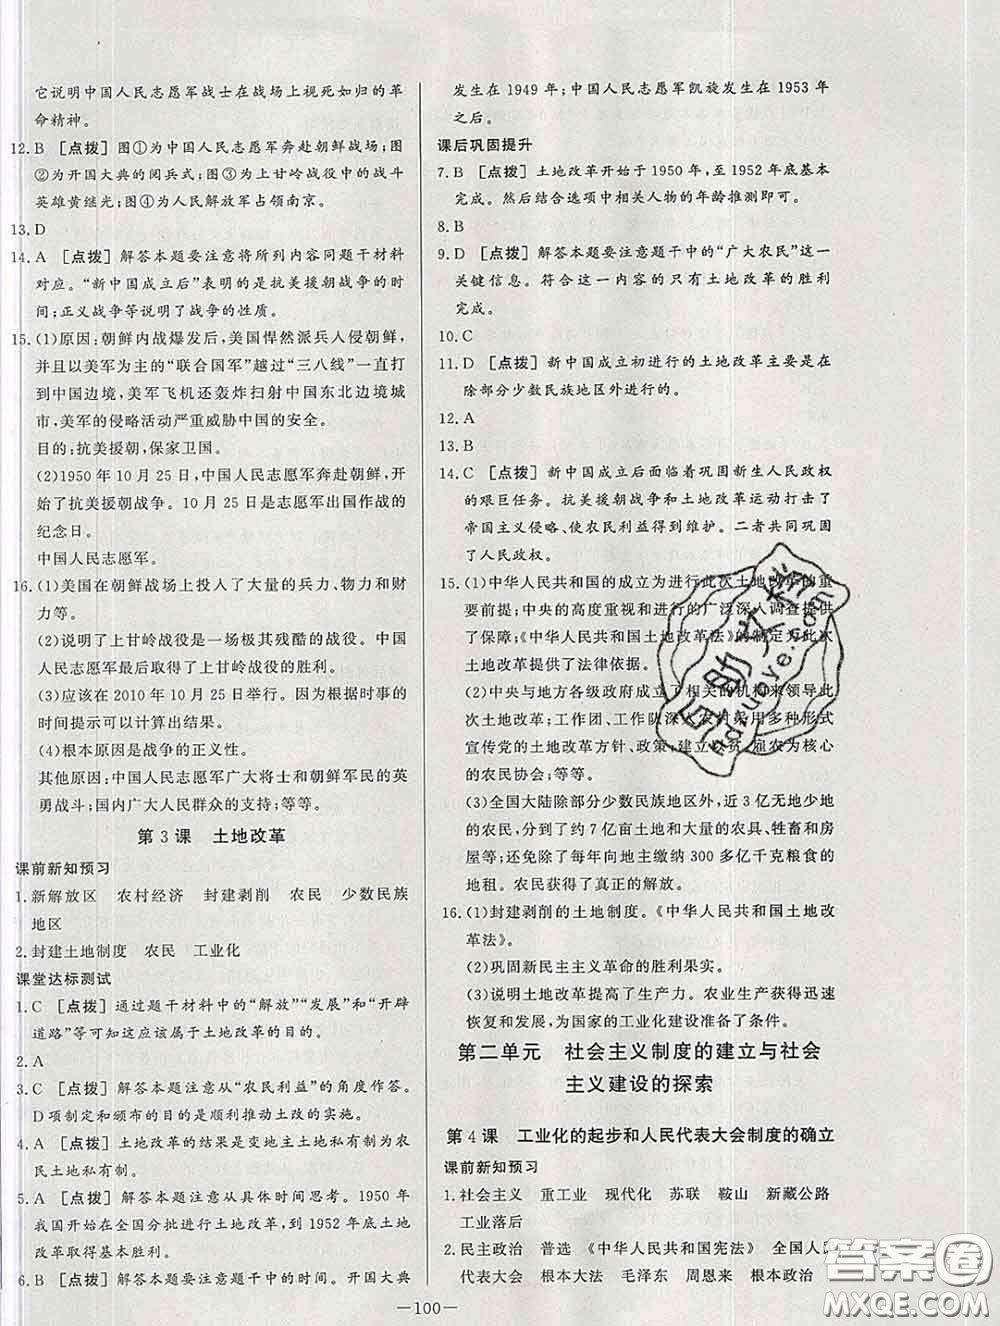 它说明中国人民志愿军战士在战场上视死如归的革
命精神。
12. B [点拨] 图①为中国人民志愿军奔赴朝鲜战场;图
②为开国大典的阅兵式;图③为上甘岭战役中的战斗
英雄黄继光;图④为人民解放军占领南京。
13. D
14. A [点拨] 解答本题要注意将所列内容同题干材料
对应。“新中国成立后”表明的是抗美援朝战争的时
间;正义战争等说明了战争的性质。
15. (1)原因:朝鲜内战爆发后,美国悍然派兵入侵朝鲜,
并且以美军为主的“联合国军”越过“三八线”一直打
到中国边境,美军飞机还轰炸扫射中国东北边境城
市,美军的侵略活动严重威胁中国的安全。
目的:抗美援朝,保家卫国。
(2)1950 年 10 月 25 日,中国人民志愿军奔赴朝鲜,开
始了抗美援朝战争。10 月 25 日是志愿军出国作战的
纪念日。
中国人民志愿军。
16. (1)美国在朝鲜战场上投入了大量的兵力、物力和财
力等。
(2)说明了上甘岭战役是一场极其残酷的战役。中国
人民志愿军最后取得了上甘岭战役的胜利。
(3)应该在 2010 年 10 月 25 日举行。因为根据时事的
时间提示可以计算出结果。
(4)根本原因是战争的正义性。
其他原因:中国人民志愿军广大将士和朝鲜军民的英
勇战斗;国内广大人民群众的支持;等等。
第 3 课 土地改革
课前新知预习
1. 新解放区 农村经济 封建剥削 农民 少数民族
地区
2. 封建土地制度 农民 工业化
课堂达标测试
1. C [点拨] 通过题干材料中的“解放”“发展”和“开辟
道路”等可知这应该属于土地改革的目的。
2. A
3. C [点拨] 解答本题注意从“农民利益”的角度作答。
D项制定和颁布的目的是顺利推动土改的实施。
4. A [点拨] 土地改革的结果是变地主土地私有制为农
民土地私有制。
5. A [点拨] 解答本题注意从具体时间思考。1950 年
我国开始在全国分批进行土地改革,到 1952 年底土地
改革取得基本胜利。
6. B [点拨] 解答本题要注意题干中的时间。开国大典
发生在 1949 年;中国人民志愿军凯旋发生在 1953 年
之后。
课后巩固提升
7. B [点拨] 土地改革开始于 1950 年,至 1952 年底基本
完成。然后结合选项中相关人物的年龄推测即可。
8. B
9. D [点拨] 解答本题要注意题干中的“广大农民”这一
关键信息。符合这一内容的只有土地改革的胜利
完成。
10. C
11. D [点拨] 新中国成立初进行的土地改革主要是在
除部分少数民族地区外进行的。
12. A
13. B
14. C [点拨] 新中国成立后面临着巩固新生人民政权
的艰巨任务。抗美援朝战争和土地改革运动打击了
帝国主义侵略、使农民利益得到维护。二者共同巩固
了人民政权。
15. (1)中华人民共和国的成立为进行此次土地改革的重
要前提;中央的高度重视和进行的广泛深入调查提供
了保障;《中华人民共和国土地改革法》的制定为此次
土地改革提供了法律依据。
(2)中央与地方各级政府成立了相关的机构来领导此
次土地改革;工作团、工作队深入农村采用多种形式
宣传党的土地改革方针、政策;建立以贫、雇农为核心
的农民协会;等等。
(3)全国大陆除部分少数民族地区外,近 3 亿无地少地
的农民,分到了约 7 亿亩土地和大量的农具、牲畜和房
屋等;还免除了每年向地主缴纳 300 多亿千克粮食的
地租。农民获得了真正的解放。
16. (1)封建剥削的土地制度。《中华人民共和国土地改
革法》。
(2)巩固新民主主义革命的胜利果实。
(3)说明土地改革提高了生产力。农业生产获得迅速
恢复和发展,为国家的工业化建设准备了条件。
第二单元 社会主义制度的建立与社会
主义建设的探索
第 4 课 工业化的起步和人民代表大会制度的确立
课前新知预习
1. 社会主义 重工业 现代化 苏联 鞍山 新藏公路
工业落后
2. 民主政治 普选 《中华人民共和国宪法》 全国人民
代表大会 根本大法 毛泽东 周恩来 根本政治
—100—
答案圈
MXQE.COM